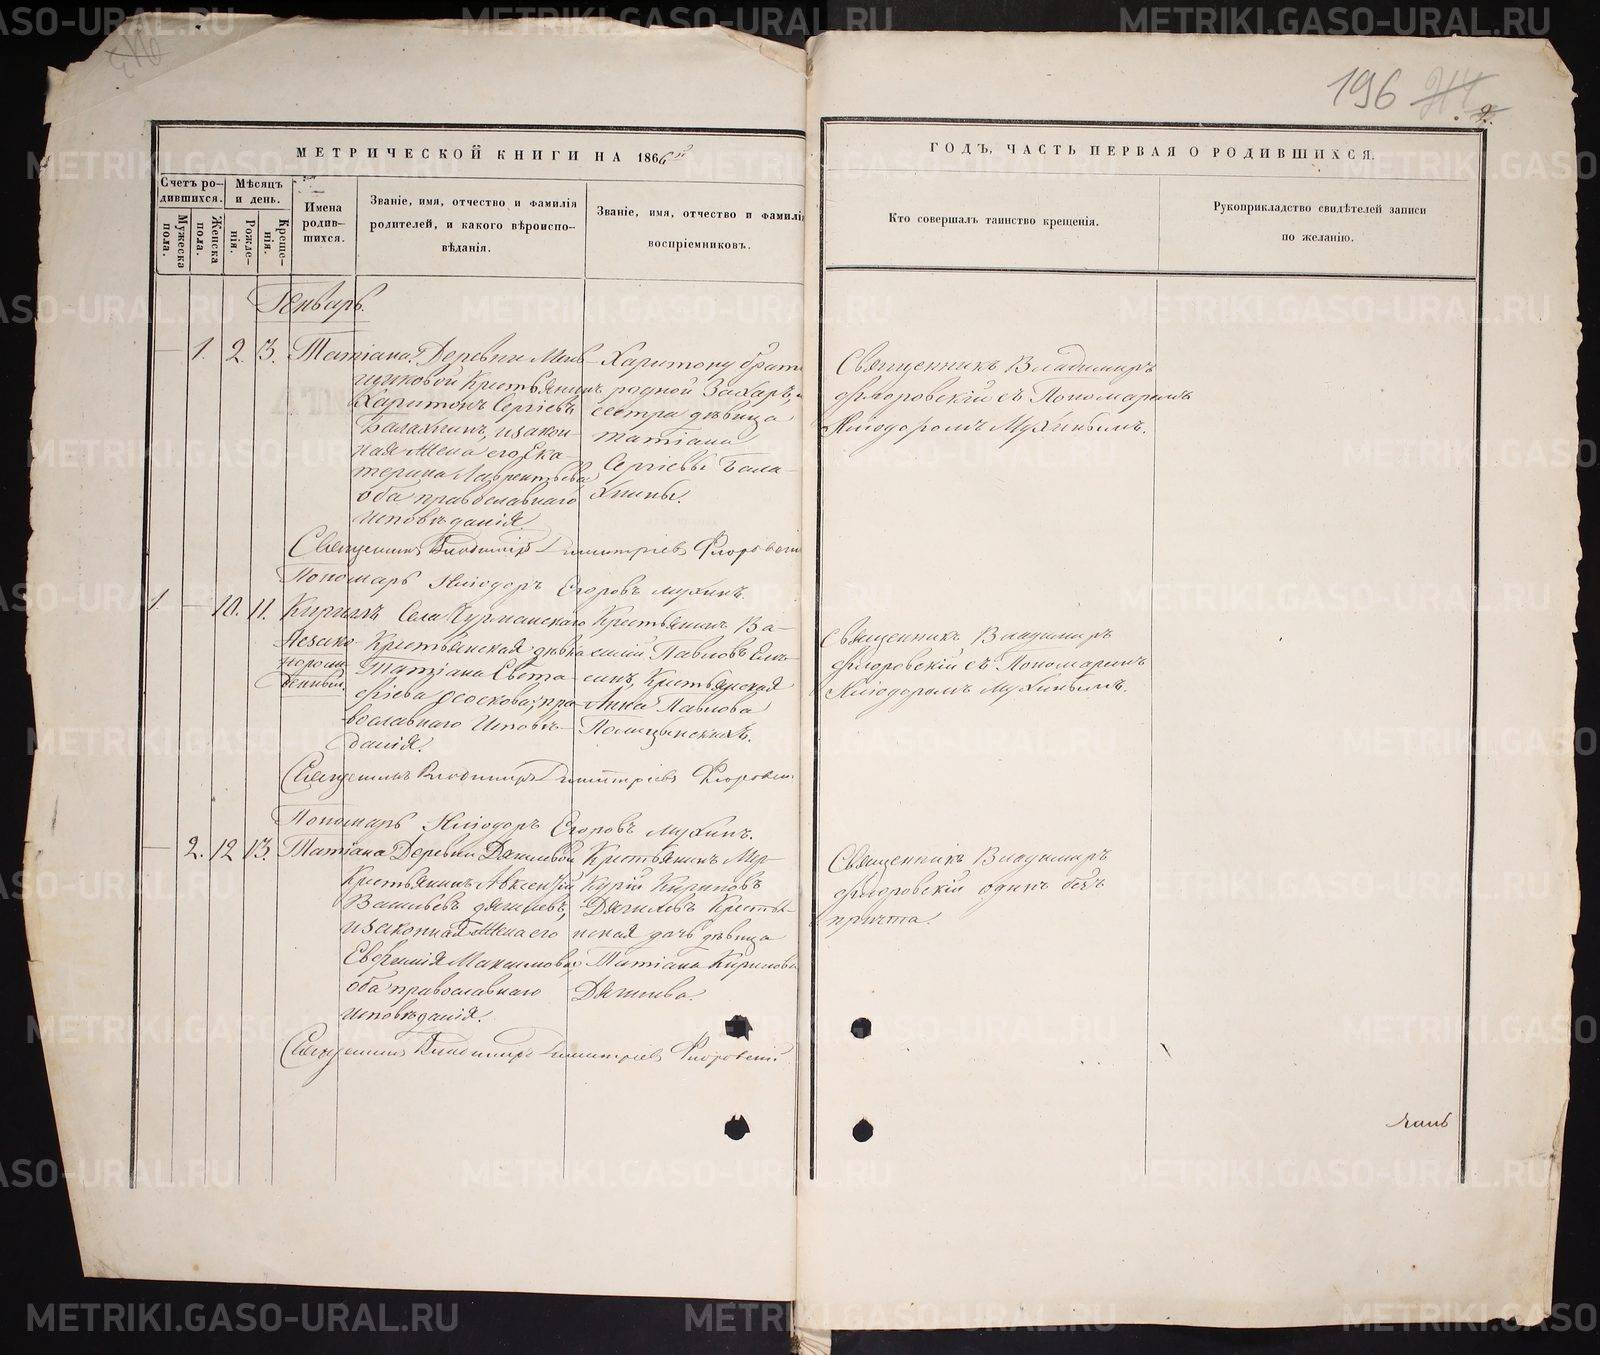 196
МЕТРИЧЕСКОЙ КНИГИ НА 1866й
ГОДЪ, ЧАСТЬ ПЕРВАЯ О РОДИВШИХСЯ.
Счетъ ро-
дившихся.
Мужеска
пола.
Женска
пола.
Мѣсяцъ
и день.
Рожде-
нія.
Креще-
нія.
Имена
родив-
шихся.
Званіе, имя, отчество и фамилія
родителей, и какого вѣроиспо-
вѣданія.
Званіе, имя, отчество и фамилія
воспріемниковъ.
Кто совершалъ таинство крещенія.
Рукоприкладство свидѣтелей записи
по желанію.
Генварь.
1. 2. 3. Татіана.
Деревни
Крестьянинъ
Харитонъ Сергіевъ
Балахнинъ, изакон-
ная жена его Ека-
терина Лаврентьева
оба православнаго
исповѣданія.
Харитону братъ
родной Захаръ, и
сестра дѣвица
татіана
Сергіевы Бала-
хнины.
Священникъ Владимиръ
Флоровскій съ Пономаремъ
Иліодоромъ Мухинымъ.
Священникъ Владимиръ Димитріевъ Флоровскій
Пономарь Иліодоръ Егоровъ Мухинъ.
1. 10. 11. Кириллъ
Незако-
норож-
денный.
Села
Крестьянская дѣвка
Татіана Евста-
фіева
православнаго Исповѣ-
данія.
Крестьянинъ Ва-
силій Павловъ
Крестьянская
Анна Павлова
Священникъ Владимиръ
Флоровскій съ Пономаремъ
Иліодоромъ Мухинымъ.
Священникъ Владимиръ Димитріевъ Флоровскій
Пономарь Иліодоръ Егоровъ Мухинъ.
2. 12 13. Татіана
Деревни Дягилевой
Крестьянинъ Авксентій
Васильевъ Дягилевъ,
изаконная жена его
Евгенія Максимова,
оба православнаго
исповѣданія.
Крестьянинъ Мер-
курій Кириловъ
Дягилевъ Кресть-
нская дочь дѣвица
Татіана Кирилова
Дягилева.
Священникъ Владимиръ
Флоровскій одинъ безъ
причта.
Священникъ Владимиръ Димитріевъ Флоровскій
METRIKI.GASO-URAL.RU